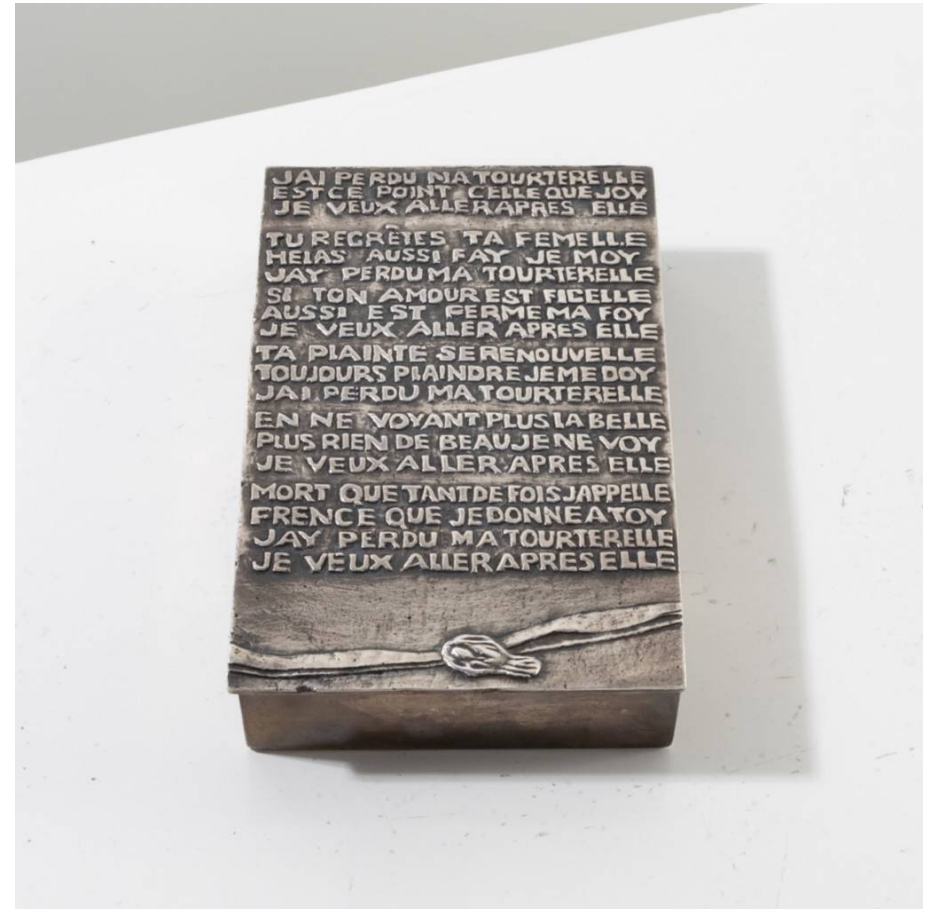 JAI PERDU MA TOURTERELLE
EST CE POINT CELLE QUE JOY
JE VEUX ALLER APRES ELLE
TU REGRÊTES TA FEMELLE
HELAS AUSSI FAY JE MOY
JAY PERDU MA TOURTERELLE
SI TON AMOUR EST FIDELLE
AUSSI EST FERME MA FOY
JE VEUX ALLER APRES ELLE
TA PLAINTE SE RENOUVELLE
TOUJOURS PLAINDRE JE ME DOY
JAI PERDU MA TOURTERELLE
EN NE VOYANT PLUS LA BELLE
PLUS RIEN DE BEAU JE NE VOY
JE VEUX ALLER APRES ELLE
MORT QUE TANT DE FOIS JAPPELLE
FRENCE QUE JE DONNE A TOY
JAY PERDU MA TOURTERELLE
JE VEUX ALLER APRES ELLE